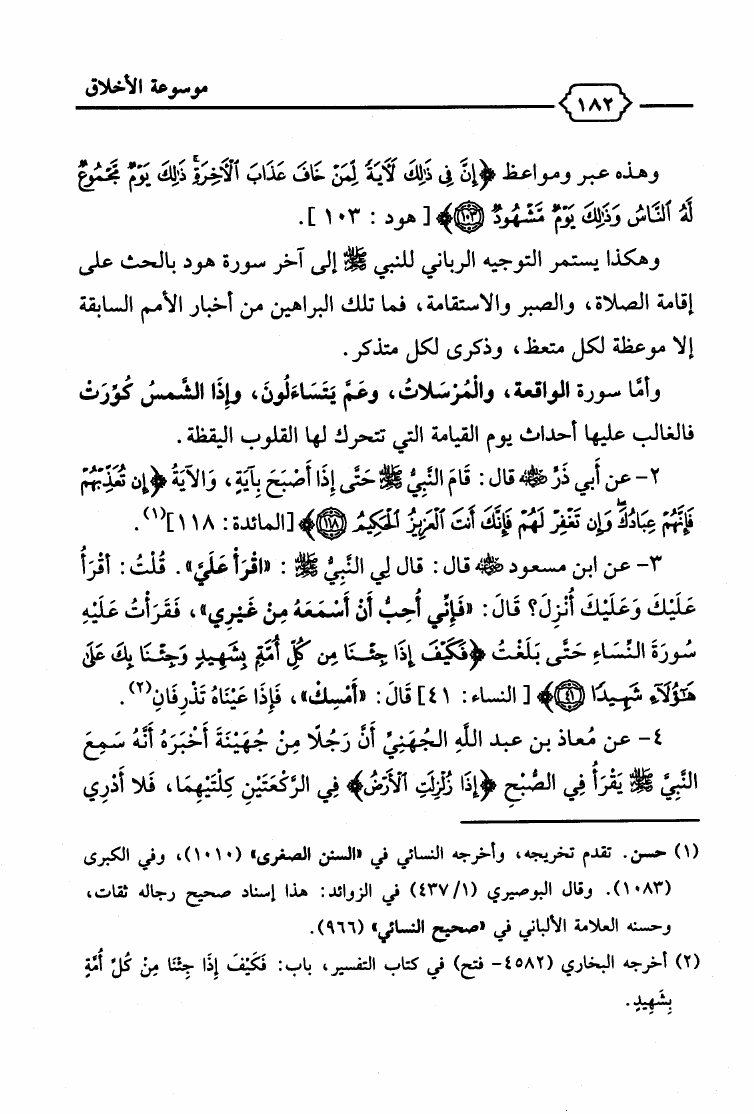 موسوعة الأخلاق
١٨٢
وهذه عبر ومواعظ ﴿إِنَّ فِي ذَٰلِكَ لَآيَةً لِّمَنْ خَافَ عَذَابَ ٱلْآخِرَةِ ۚ ذَٰلِكَ يَوْمٌ مَّجْمُوعٌ
لَّهُ ٱلنَّاسُ وَذَٰلِكَ يَوْمٌ مَّشْهُودٌ ۝١٠٣﴾ [ هود : ١٠٣ ].
وهكذا يستمر التوجيه الرباني للنبي ﷺ إلى آخر سورة هود بالحث على
إقامة الصلاة، والصبر والاستقامة، فما تلك البراهين من أخبار الأمم السابقة
إلا موعظة لكل متعظ، وذكرى لكل متذكر.
وأمَّا سورة الواقعة، والْمُرْسَلاتُ، وعَمَّ يَتَسَاءَلُونَ، وإِذَا الشَّمسُ كُوِّرَتْ
فالغالب عليها أحداث يوم القيامة التي تتحرك لها القلوب اليقظة.
٢- عن أبي ذَرٍّ رضي الله عنه قال: قَامَ النَّبِيُّ ﷺ حَتَّى إِذَا أَصْبَحَ بِآيَةٍ، وَالآيَةُ ﴿إِن تُعَذِّبْهُمْ
فَإِنَّهُمْ عِبَادُكَ ۖ وَإِن تَغْفِرْ لَهُمْ فَإِنَّكَ أَنتَ ٱلْعَزِيزُ ٱلْحَكِيمُ ۝١١٨﴾ [المائدة: ١١٨](١).
٣- عن ابن مسعود رضي الله عنه قال: قال لِي النَّبِيُّ ﷺ : «اقْرَأْ عَلَيَّ». قُلْتُ: أقْرَأُ
عَلَيْكَ وَعَلَيْكَ أُنْزِلَ؟ قَالَ: «فَإِنِّي أُحِبُّ أَنْ أَسْمَعَهُ مِنْ غَيْرِي»، فَقَرَأْتُ عَلَيْهِ
سُورَةَ النِّسَاءِ حَتَّى بَلَغْتُ ﴿فَكَيْفَ إِذَا جِئْنَا مِن كُلِّ أُمَّةٍ بِشَهِيدٍ وَجِئْنَا بِكَ عَلَىٰ
هَٰٓؤُلَآءِ شَهِيدًا ۝٤١﴾ [ النساء: ٤١] قَالَ: «أَمْسِكْ»، فَإِذَا عَيْنَاهُ تَذْرِفَانِ(٢).
٤- عن مُعَاذ بن عبد اللَّهِ الجُهَنِيِّ أَنَّ رَجُلًا مِنْ جُهَيْنَةَ أَخْبَرَهُ أَنَّهُ سَمِعَ
النَّبِيَّ ﷺ يَقْرَأُ فِي الصُّبْحِ ﴿إِذَا زُلْزِلَتِ ٱلْأَرْضُ﴾ فِي الرَّكْعَتَيْنِ كِلْتَيْهِمَا، فَلا أَدْرِي
(١) حسن. تقدم تخريجه، وأخرجه النسائي في «السنن الصغرى» (١٠١٠)، وفي الكبرى
(١٠٨٣). وقال البوصيري (١/ ٤٣٧) في الزوائد: هذا إسناد صحيح رجاله ثقات،
وحسنه العلامة الألباني في «صحيح النسائي» (٩٦٦).
(٢) أخرجه البخاري (٤٥٨٢- فتح) في كتاب التفسير، باب: فَكَيْفَ إِذَا جِئْنَا مِنْ كُلِّ أُمَّةٍ
بِشَهِيدٍ.